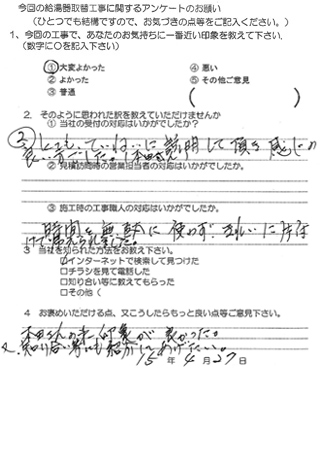 今回の給湯器取替工事に関するアンケートのお願い
（ひとつでも結構ですので、お気づきの点等をご記入ください。）
1、今回の工事で、あなたのお気持ちに一番近い印象を教えて下さい。
（数字に〇を記入下さい）
①大変よかった
④悪い
②よかった
⑤その他ご意見
③普通
（　　　）
2. そのように思われた訳を教えていただけませんか
①当社の受付の対応はいかがでしたか？
② とてもていねいに説明して頂き感じの
良い方でした。（本田様）
②見積訪問時の営業担当者の対応はいかがでしたか。
③施工時の工事職人の対応はいかがでしたか。
時間を無駄に使わず、きれいに片付
けて帰られました。
3 当社を知られた方法をお教え下さい。
☑インターネットで検索して見つけた
□チラシを見て電話した
□知り合い等に教えてもらった
□その他（
4 お褒めいただける点、又こうしたらもっと良い点等ご意見下さい。
本田さんの印象が良かった。
又、知り合い等にも紹介してあげたい。
15年 4月 27日